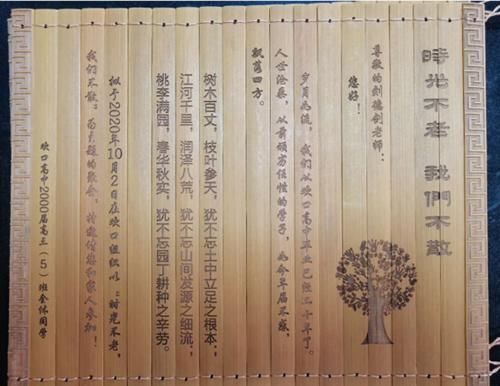 時光不老 我們不散
尊敬的刘德剑老师：
您好！
岁月如流，我们从欢口高中毕业已经二十年了。
人世沧桑，从前顽劣任性的学子，如今年届不惑，
飘荡四方。
树木百丈，枝叶参天，犹不忘土中立足之根本；
江河千里，润泽八荒，犹不忘山间发源之细流；
桃李满园，春华秋实，犹不忘园丁耕种之辛劳。
拟于2020年10月2日在欢口组织以“时光不老，
我们不散”为主题的聚会，特邀请您和家人参加！
欢口高中2000届高三（5）班全体同学